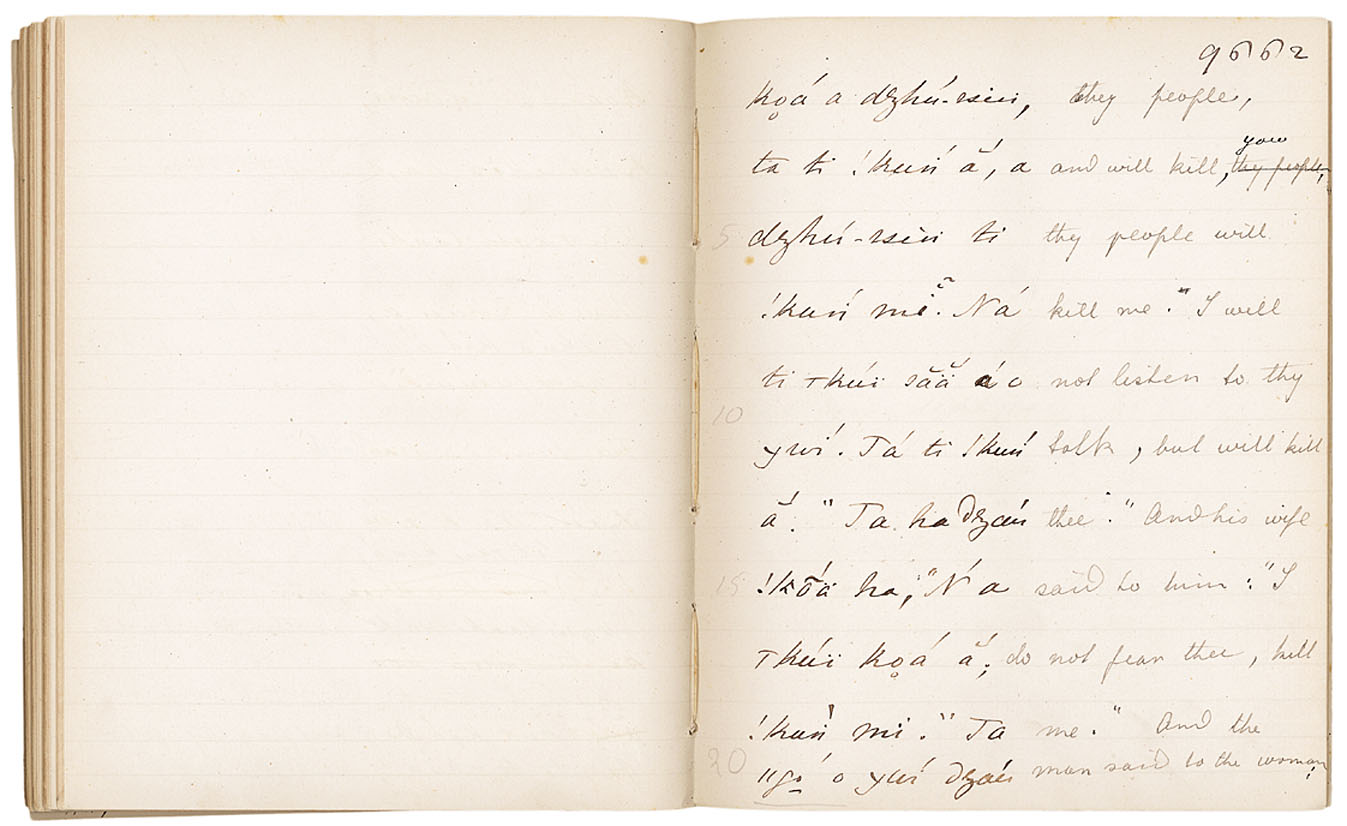 9662
kọá a dzhú-ssin, they people,
you
ta ti !kuń ǎ́, a and will kill, thy people,
5 dzhú-ssin ti thy people will
!kuń mi. Ná kill me." I will
ti ⊤kúï sǎä́ á o not listen to thy
10
χwí. Tá ti !kuń talk, but will kill
ǎ́." Ta ha dzáu thee." And his wife
15 !kṓä ha; "Ń a said to him: "I
⊤kúï kọá ǎ́; do not fear thee, kill
!kuń mi." Ta me." And the
20 ǁgọ́ o χwí dzáu man said to the woman;